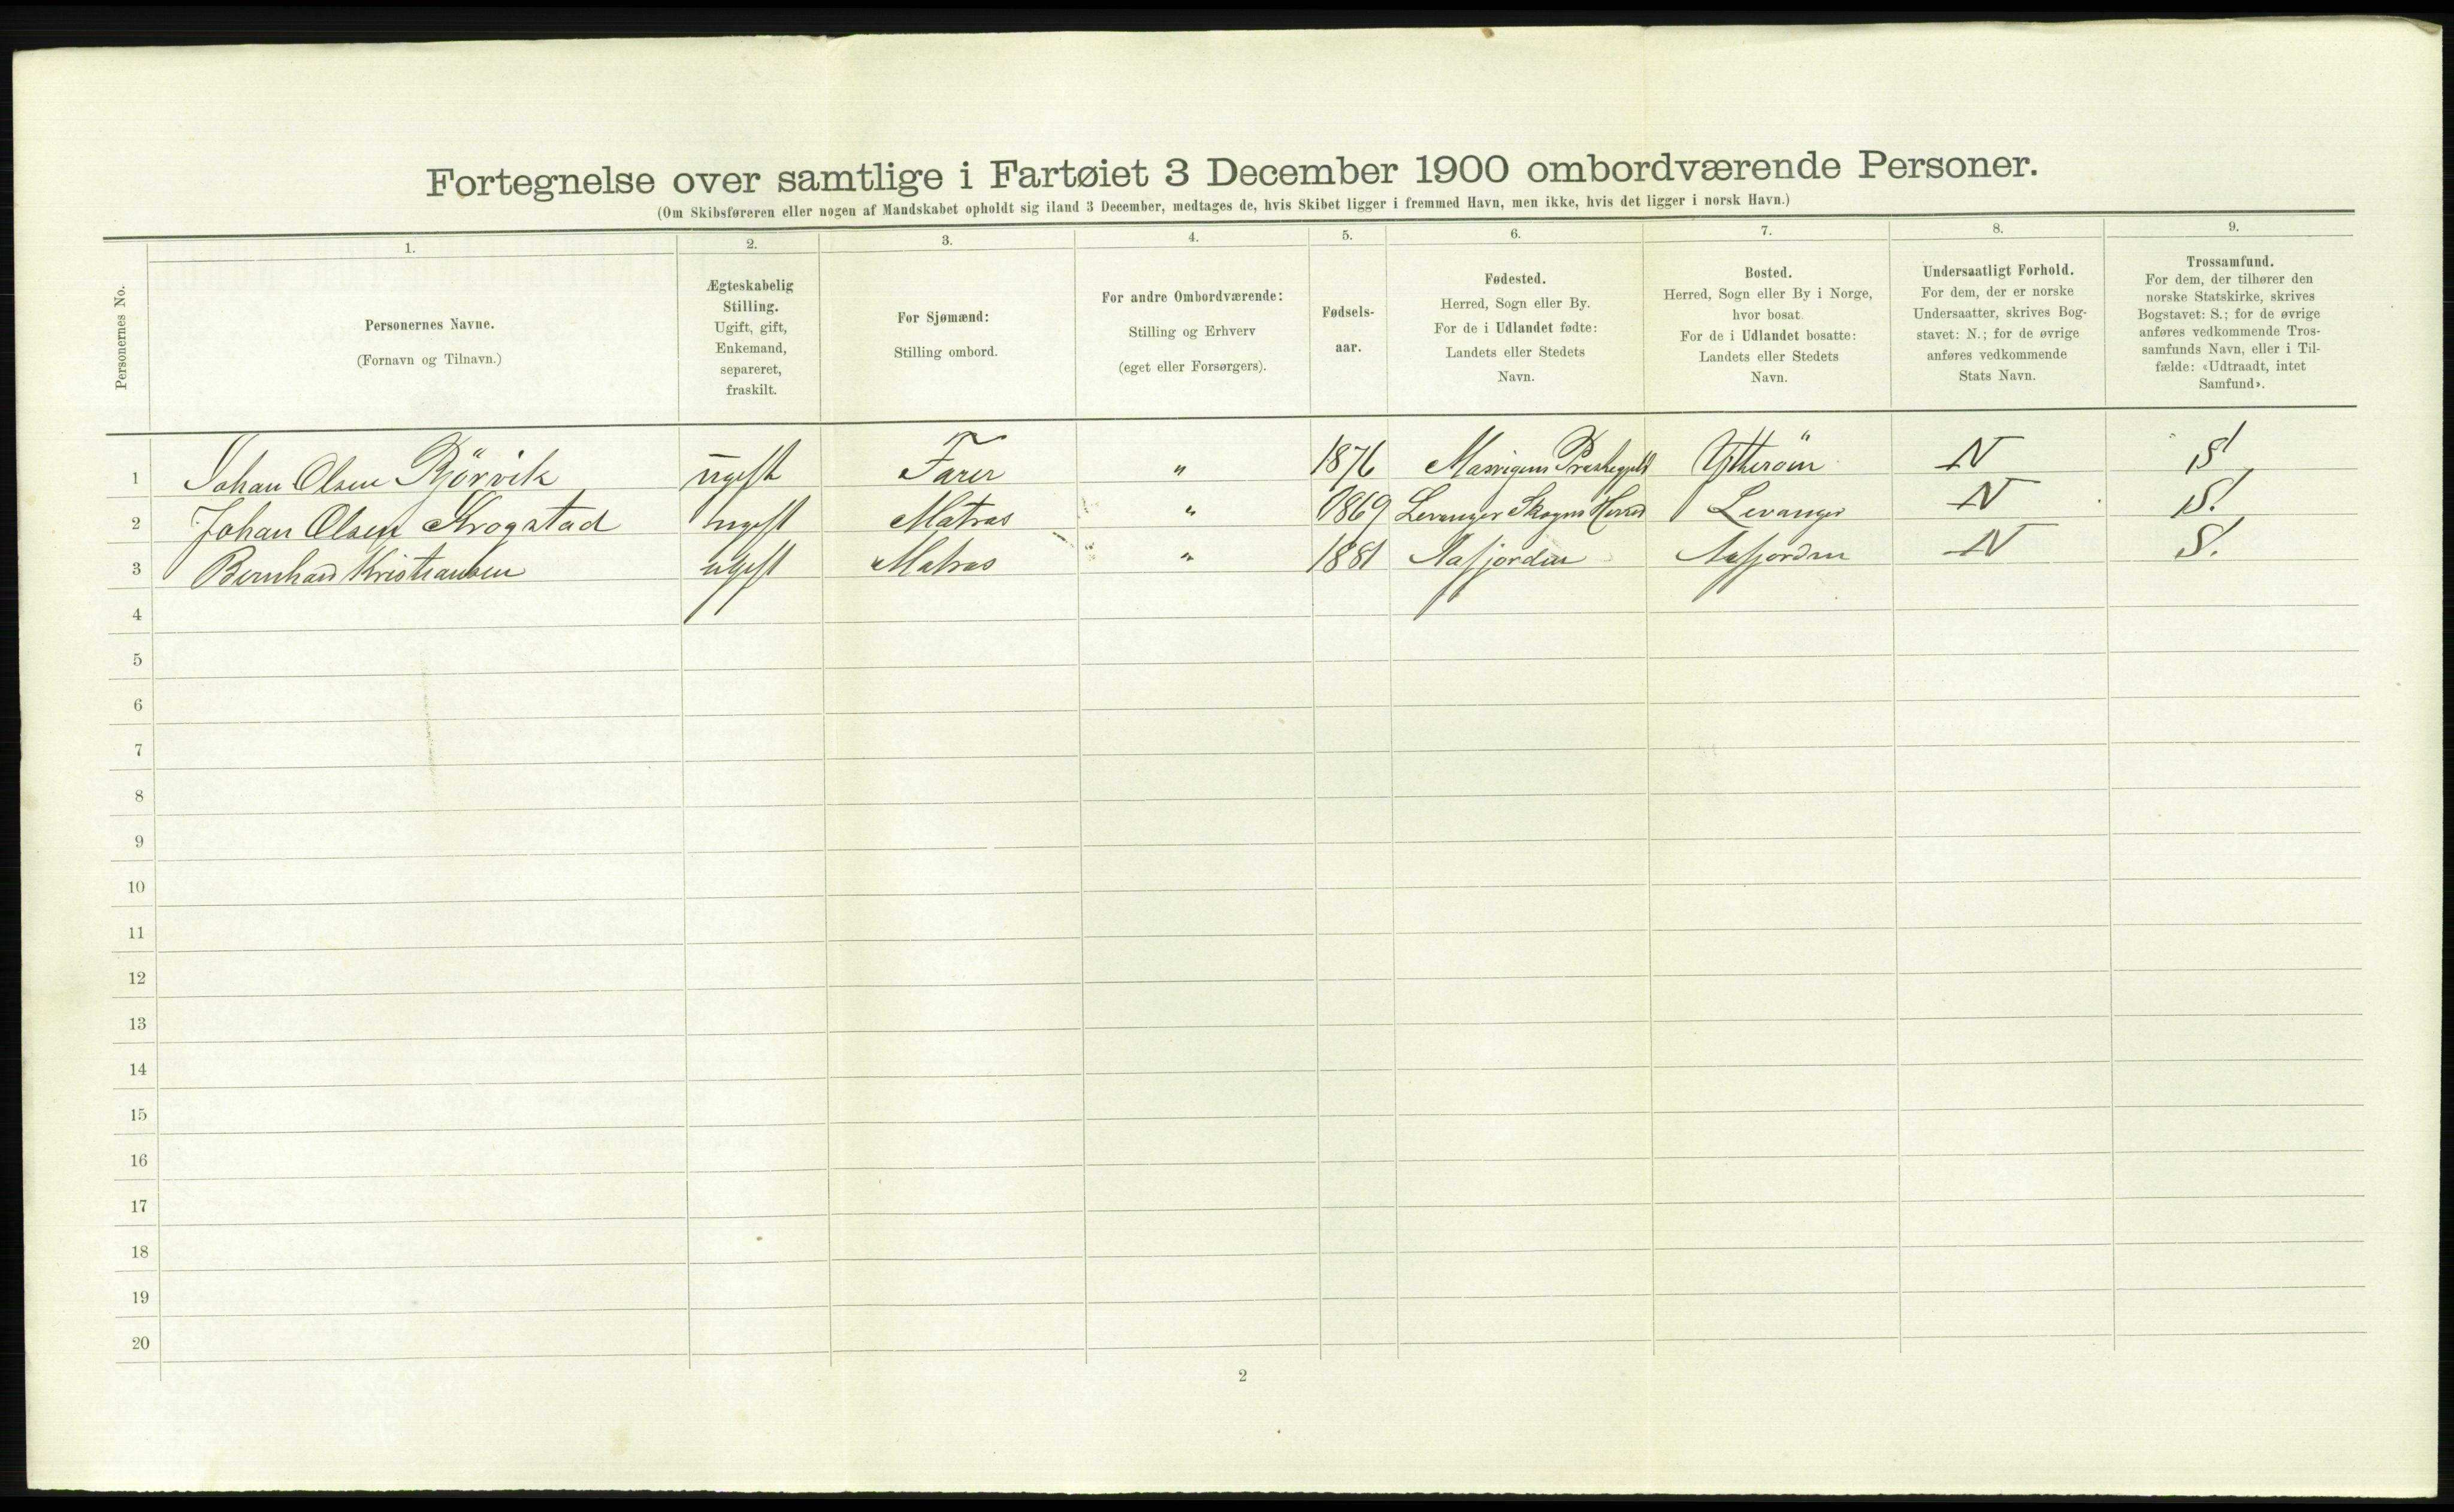 Fortegnelse over samtlige i Fartøiet 3 December 1900 ombordværende Personer.
(Om Skibsføreren eller nogen af Mandskabet opholdt sig iland 3 December, medtages de, hvis Skibet ligger i fremmed Havn, men ikke, hvis det ligger i norsk Havn.)
Personernes No.
1.
Personernes Navne.
(Fornavn og Tilnavn.)
2.
Ægteskabelig
Stilling.
Ugift, gift,
Enkemand,
separeret,
fraskilt.
3.
For Sjømænd:
Stilling ombord.
4.
For andre Ombordværende:
Stilling og Erhverv
(eget eller Forsørgers).
5.
Fødsels-
aar.
6.
Fødested.
Herred, Sogn eller By.
For de i Udlandet fødte:
Landets eller Stedets
Navn.
7.
Bosted.
Herred, Sogn eller By i Norge,
hvor bosat.
For de i Udlandet bosatte:
Landets eller Stedets
Navn.
8.
Undersaatligt Forhold.
For dem, der er norske
Undersaatter, skrives Bog-
stavet: N.; for de øvrige
anføres vedkommende
Stats Navn.
9.
Trossamfund.
For dem, der tilhører den
norske Statskirke, skrives
Bogstavet: S.; for de øvrige
anføres vedkommende Tros-
samfunds Navn, eller i Til-
fælde: «Udtraadt, intet
Samfund».
1 Johan Olsen Björvik ugift " 1876 N S
2 Johan Olsen Krogstad ugift Matros " 1869 Levanger Skogns Herred Levanger N S.
3 Bernhard Kristiansen ugift Matros " 1881 Aafjorden Aafjorden N S.
4
5
6
7
8
9
10
11
12
13
14
15
16
17
18
19
20
2